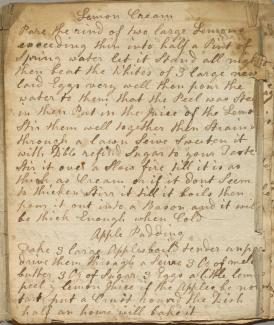 Lemon Cream
Pare the rind of two large Lemons
exceeding thin into half a Pint of
Spring water let it Stand all night
then beat the Whites of 3 large new
laid Eggs very well then pour the
water to them that the Peel was Steep
in then Put in the Juice of the Lemons
Stir them well together then Strain
through a lawn Seive Sweeten it
with Dble refind Sugar to your Taste
Stir it over a Slow fire till it is as
thick as Cream but if dont Seem
to thicken Stirr it till it boils then
pour it out into a Bason and it will
be thick Enough when Cold
Apple Pudding
Take 3 large Apples boil tender
drive them through a Seive 3 Oz of melted
butter 3 Oz of Sugar 3 Eggs a little lemon
peel & lemon Juice if the Apples be not
tart put a Crust round the Dish
half an hour will bake it